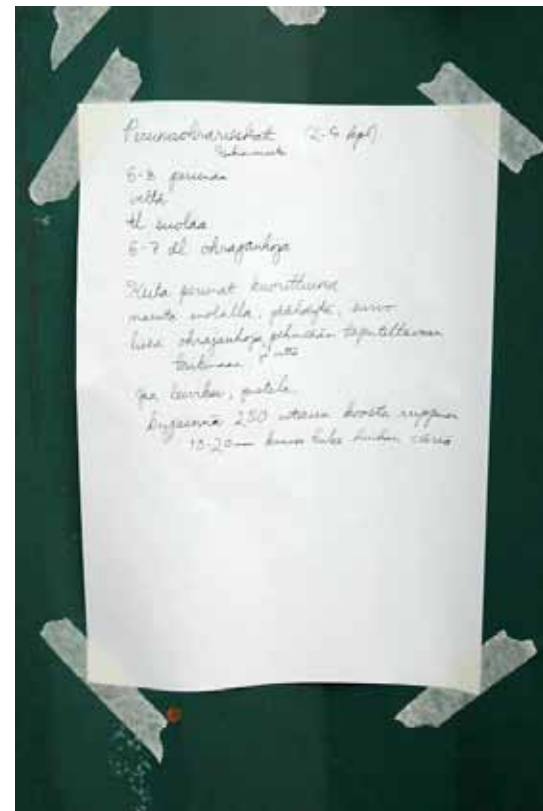 Perunaohrarieskat (2-4 kpl)
6-8 perunaa
vettä
tl suolaa
6-7 dl ohrajauhoja
Keitä perunat kuorittuina
mausta suolalla, jäähdytä, survo
lisää ohrajauhoja, pehmeään taputeltavaan
taikinaan
jaa leiviksi, pistele
250
10-20 kunnes tulee hiukan väriä